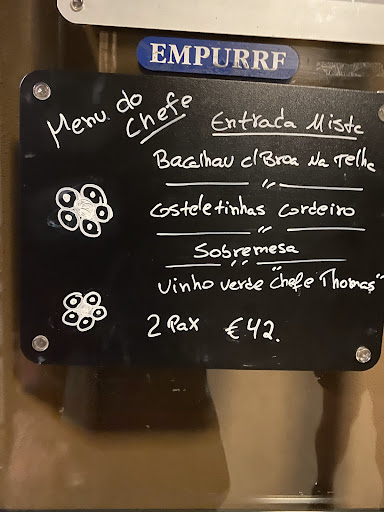 EMPURRE
Menu do
Chefe
Entrada Mista
Bacalhau c/ Broa Na Telha
"
Costeletinhas Cordeiro
"
Sobremesa
"
Vinho Verde "Chefe Thomas"
2 Pax €42.